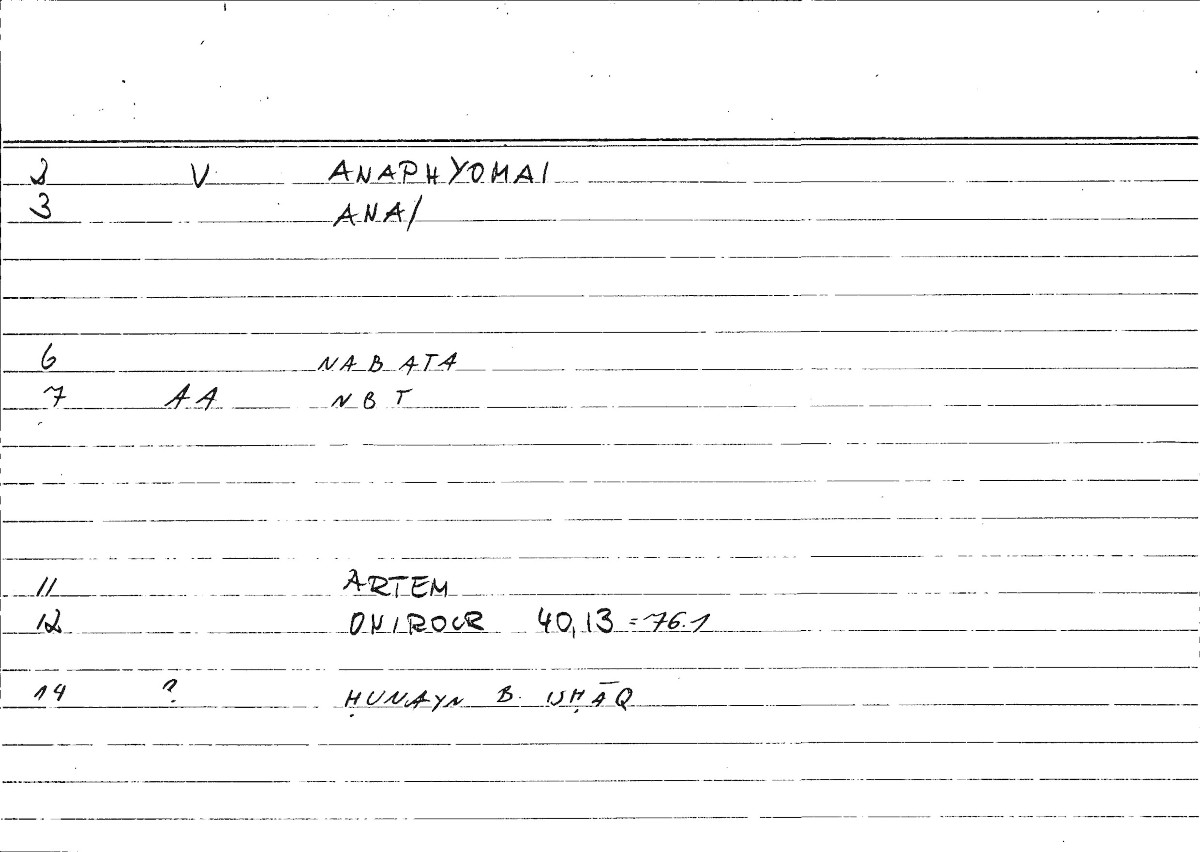 2 V ANAPHYOMAI
3 ANA/
6 NABATA
7 AA NBT
11 ARTEM
12 ONIROCR 40,13 = 76.1
14 ? ḤUNAYN B. ISḤĀQ